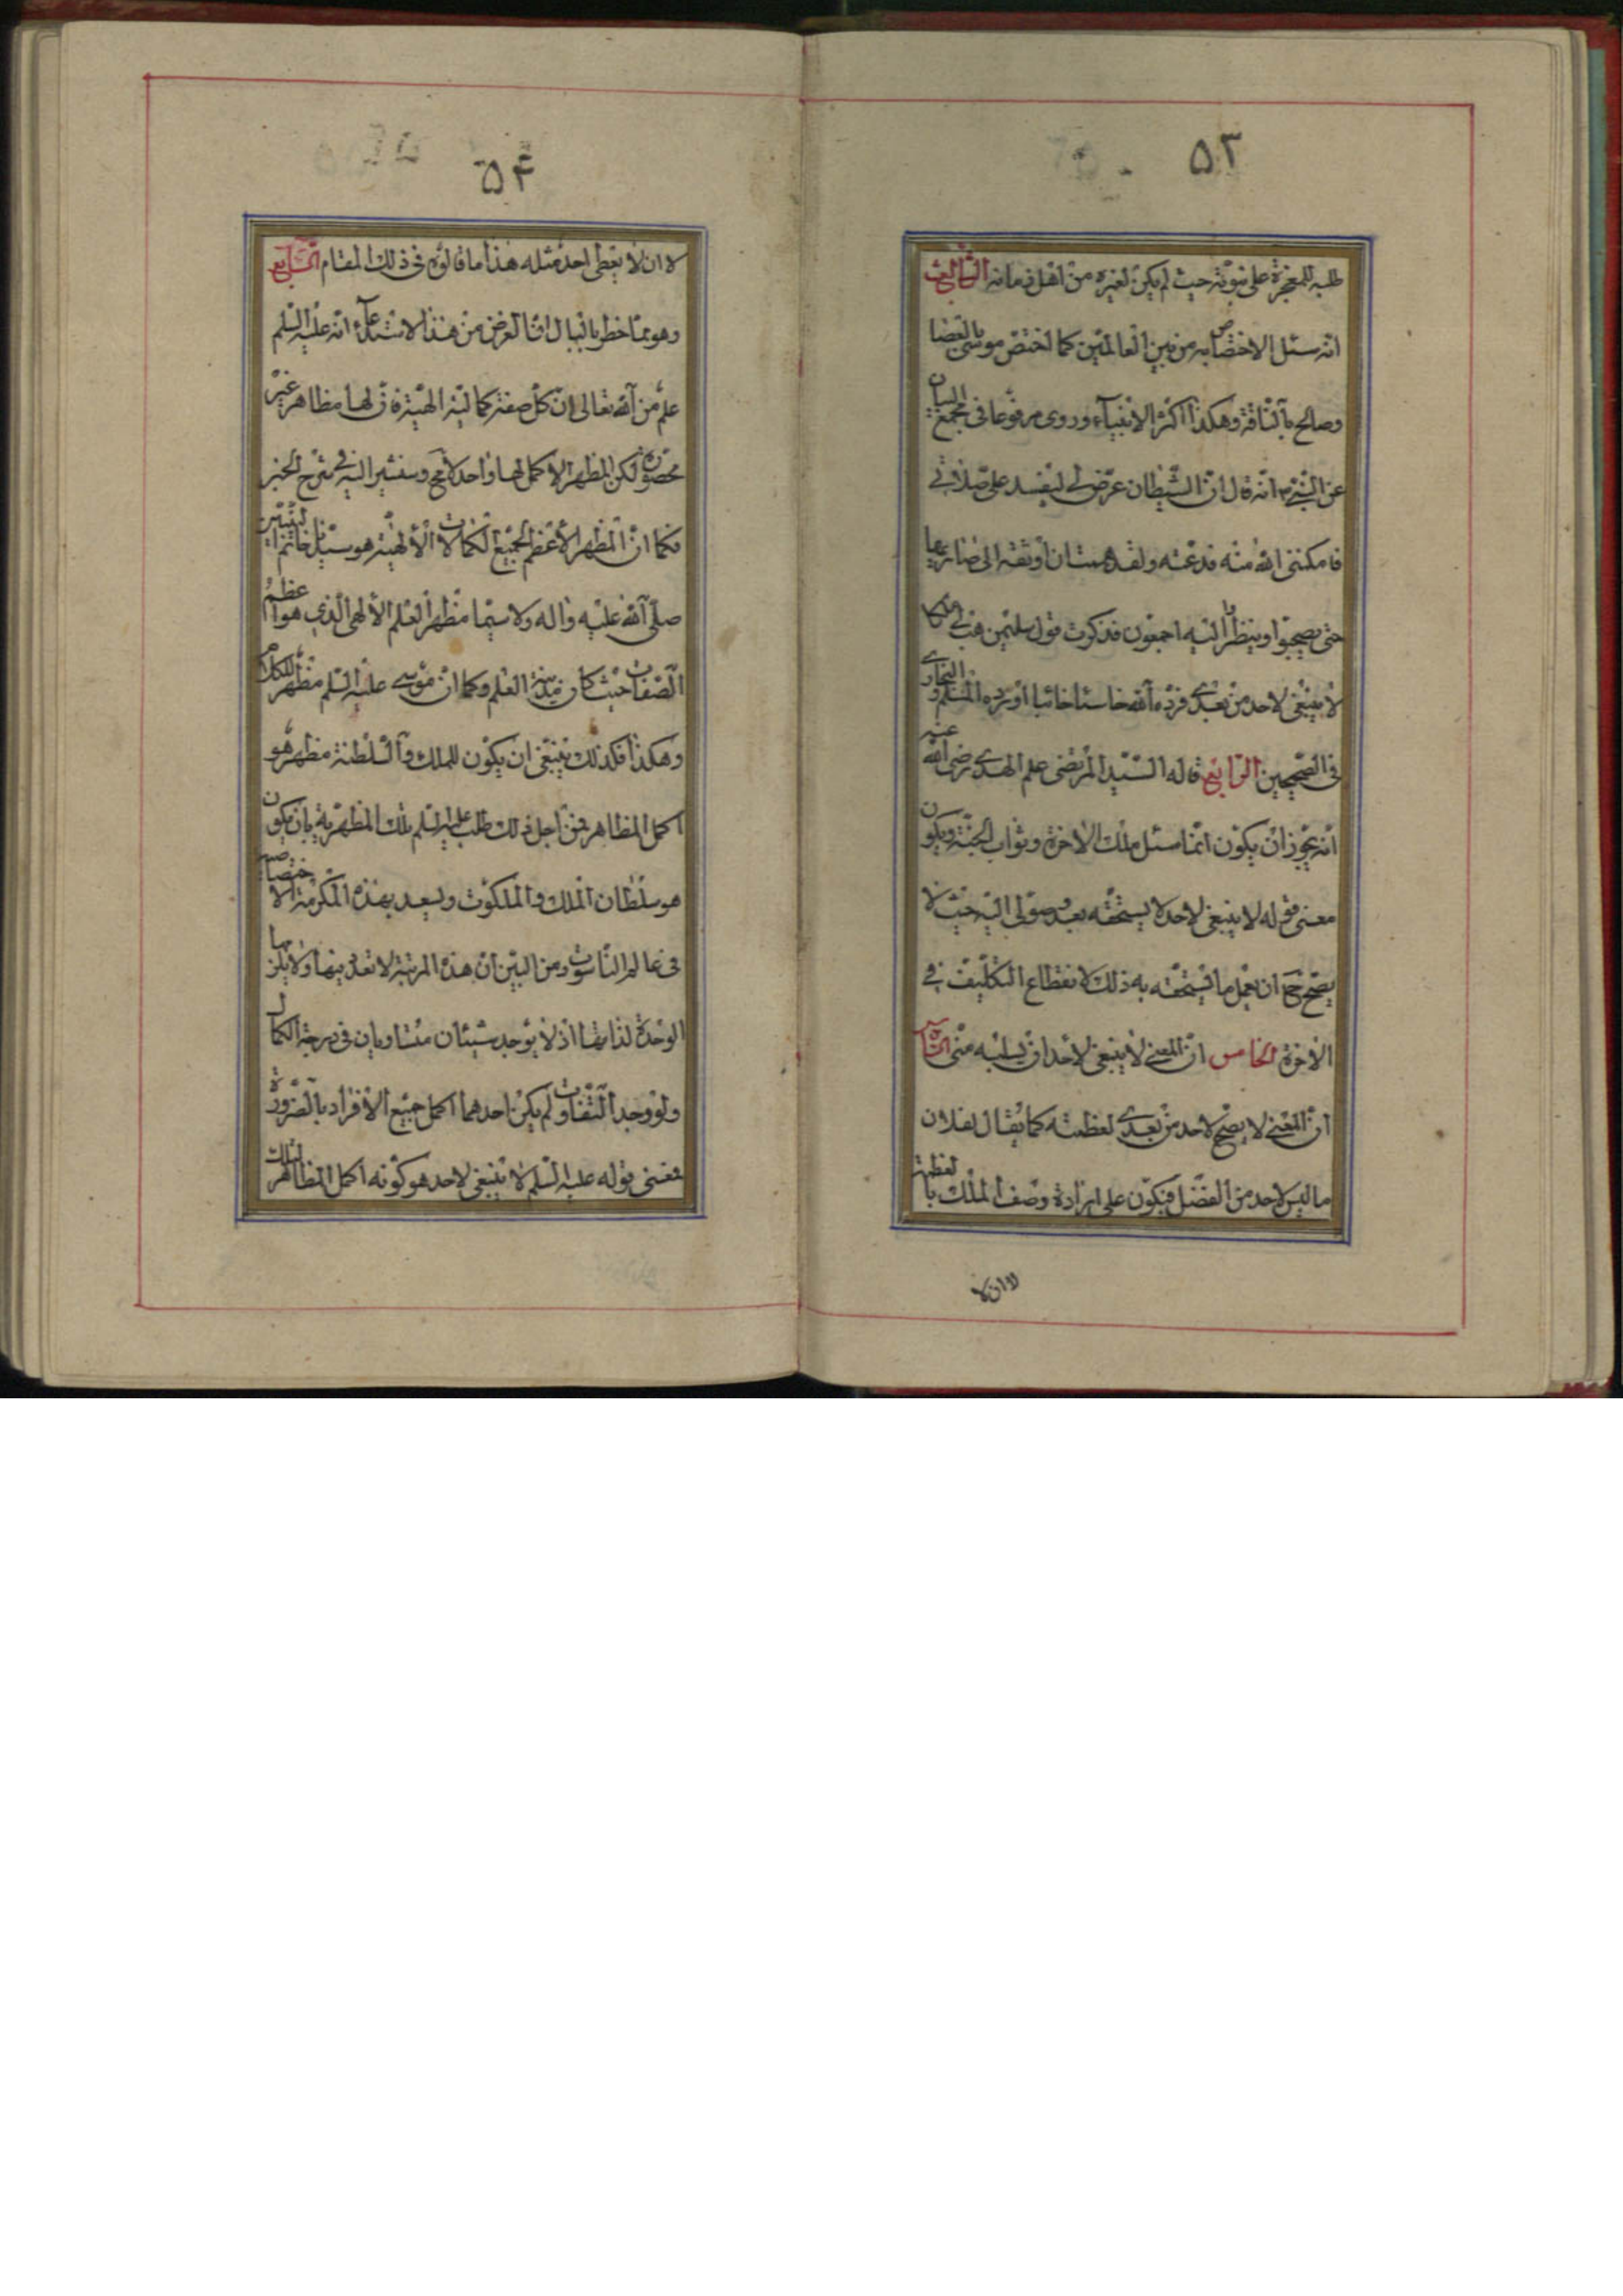 ۵۲
طلبه للمعجزة على نبوته حيث لم يكن لغيره من اهل زمانه الثالث
انه سئل الاختصاص به من بين العالمين كما اختص موسى بالعصا
وصالح بالناقة وهكذا اكثر الانبياء وروى مرفوعا فى مجمع البيان
عن النبى انه قال ان الشيطان عرض لى ليفسد على صلاتى
فامكننى الله منه فدعته ولقد هممت ان اوثقه الى سارية
حتى يصبحوا وينظروا اليه اجمعون فذكرت قول سليمن هب لى ملكا
لا ينبغى لاحد من بعدى فرده الله خاسئا خائبا اورده المسلم و البخارى
فى الصحيحين الرابع قاله السيد المرتضى علم الهدى رضى الله عنه
انه يجوز ان يكون انما سئل ملك الاخرة وثواب الجنة ويكون
معنى قوله لا ينبغى لاحد لا يستحقه بعد وصولى اليه حيث لا
يصح ان يعمل ما يستحقه به ذلك لانقطاع التكليف فى
الاخرة الخامس ان المعنى لا ينبغى لاحد ان يسلبه منى السادس
ان المعنى لا يصح لاحد من بعدى لعظمته كما يقال لفلان
ما ليس لاحد من الفضل فيكون على ارادة وصف الملك بالعظمة
لا ان لا
۵۴
لا ان لا يعطى احد مثله هذا ما قالوه فى ذلك المقام السابع
وهو مما خطر بالبال ان الغرض من هذا الاستدعاء انه عليه السلم
علم من الله تعالى ان كل صفة كمالية الهية فان لها مظاهر غير
محصورة لكن المظهر الاكمل لها واحد لا مح وسنشير اليه فى شرح الخبر
فكما ان المظهر الاعظم لجميع الكمالات الالهية هو سيدنا خاتم النبيين
صلى الله عليه واله ولا سيما مظهر العلم الالهى الذى هو اعظم
الصفات حيث كان مدينة العلم وكما ان موسى عليه السلم مظهر للكلام
وهكذا فكذلك ينبغى ان يكون للملك والسلطنة مظهر هو
اكمل المظاهر فمن اجل ذلك طلب عليه السلم تلك المظهرية بان يكون
هو سلطان الملك والملكوت ويسعد بهذه المكرمة الاختصاصية
فى عالم الناسوت ومن البين ان هذه المرتبة لا تعدد فيها ولا يلزمها
الوحدة لذاتها اذ لا يوجد شيئان متساويان فى درجة الكمال
ولو وجد التفاوت لم يكن احدهما اكمل جميع الافراد بالضرورة
فمعنى قوله عليه السلم لا ينبغى لاحد هو كونه اكمل المظاهر لتلك